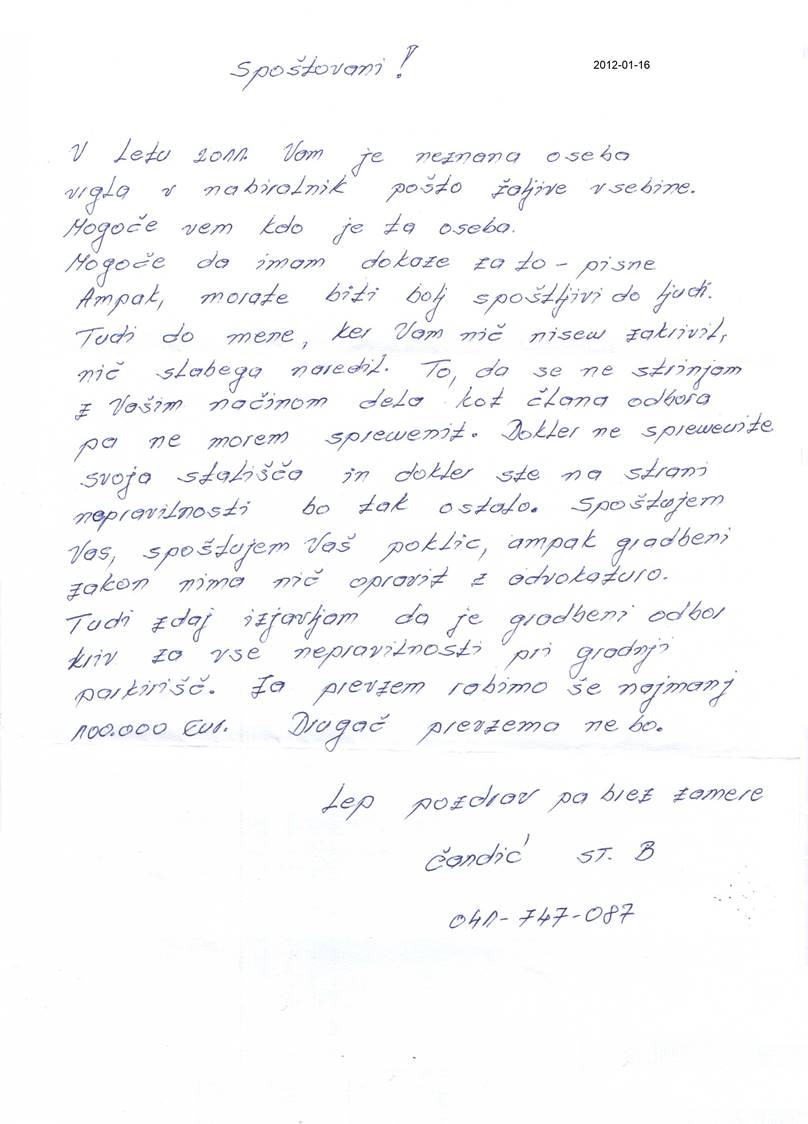 Spoštovani!
2012-01-16
V Letu 2011. Vam je neznana oseba
vrgla v nabiralnik pošto žaljive vsebine.
Mogoče vem kdo je ta oseba.
Mogoče da imam dokaze za to - pisne
Ampak, morate biti bolj spoštljivi do ljudi.
Tudi do mene, ker Vam nič nisem zakrivil,
nič slabega naredil. To, da se ne strinjam
z Vašim načinom dela kot člana odbora
pa ne morem spremenit. Dokler ne spremenite
svoja stališča in dokler ste na strani
nepravilnosti bo tak ostalo. Spoštujem
Vas, spoštujem Vaš poklic, ampak gradbeni
zakon nima nič opravit z advokaturo.
Tudi zdaj izjavljam da je gradbeni odbor
kriv za vse nepravilnosti pri gradnji
parkirišč. Za prevzem rabimo še najmanj
100.000 Eur. Drugač prevzema ne bo.
Lep pozdrav pa brez zamere
Čandić ST. B
041-747-087